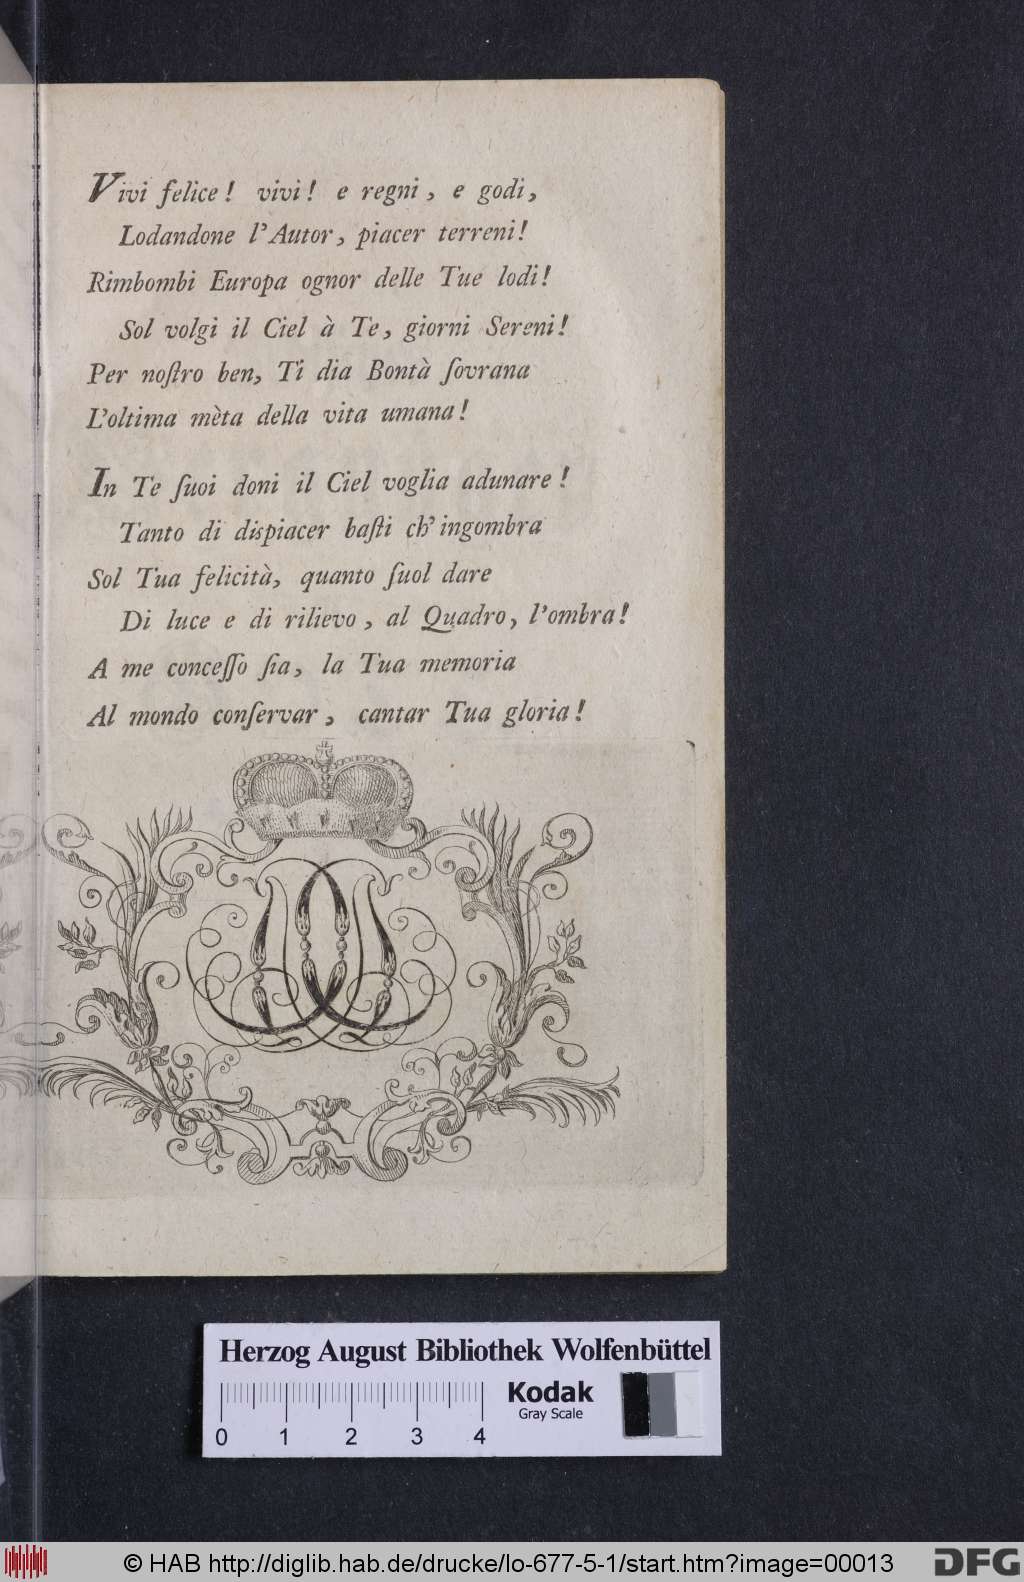 Vivi felice! vivi! e regni, e godi,
Lodandone l'Autor, piacer terreni!
Rimbombi Europa ognor delle Tue lodi!
Sol volgi il Ciel à Te, giorni Sereni!
Per noſtro ben, Ti dia Bontà ſovrana
L'oltima mèta della vita umana!
In Te ſuoi doni il Ciel voglia adunare!
Tanto di dispiacer baſti ch'ingombra
Sol Tua felicità, quanto ſuol dare
Di luce e di rilievo, al Quadro, l'ombra!
A me conceſſo ſia, la Tua memoria
Al mondo conſervar, cantar Tua gloria!
Herzog August Bibliothek Wolfenbüttel
Kodak
Gray Scale
0 1 2 3 4
© HAB http://diglib.hab.de/drucke/lo-677-5-1/start.htm?image=00013
DFG